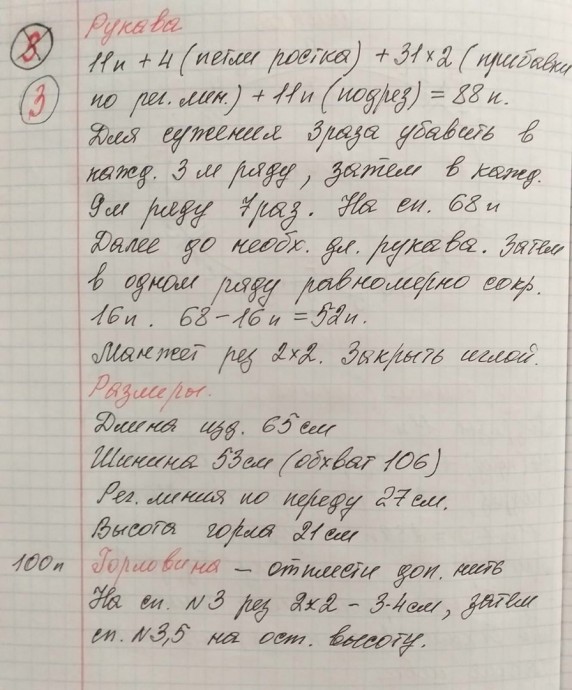 Рукава
8
11п + 4 (петли ростка) + 31×2 (прибавки
3
по рег. лин.) + 11п (подрез) = 88 п.
Для сужения 3 раза убавить в
кажд. 3 м ряду, затем в кажд.
9м ряду 7 раз. На сп. 68п
Далее до необх. дл. рукава. Затем
в одном ряду равномерно сокр.
16п. 68-16п = 52п.
Манжет рез 2×2. Закрыть иглой.
Размеры.
Длина изд. 65 см
Ширина 53 см (обхват 106)
Рег. линия по переду 27 см.
Высота горла 21 см
100п Горловина – отплести доп. нить
На сп. №3 рез 2×2 – 3-4см, затем
сп. №3,5 на ост. высоту.